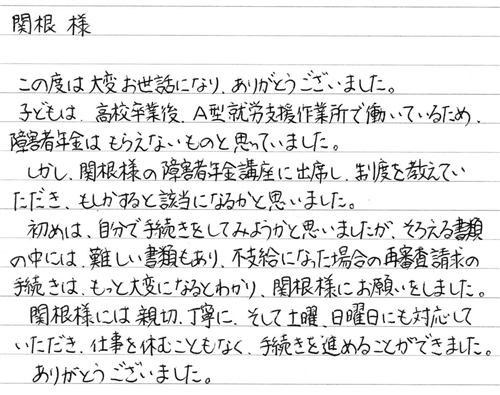 関根 様
この度は大変お世話になり、ありがとうございました。
子どもは、高校卒業後、A型就労支援作業所で働いているため、
障害者年金はもらえないものと思っていました。
しかし、関根様の障害者年金講座に出席し、制度を教えてい
ただき、もしかすると該当になるかと思いました。
初めは、自分で手続きをしてみようかと思いましたが、そろえる書類
の中には、難しい書類もあり、不支給になった場合の再審査請求の
手続きは、もっと大変になるとわかり、関根様にお願いをしました。
関根様には親切、丁寧に、そして土曜、日曜日にも対応して
いただき、仕事を休むこともなく、手続きを進めることができました。
ありがとうございました。